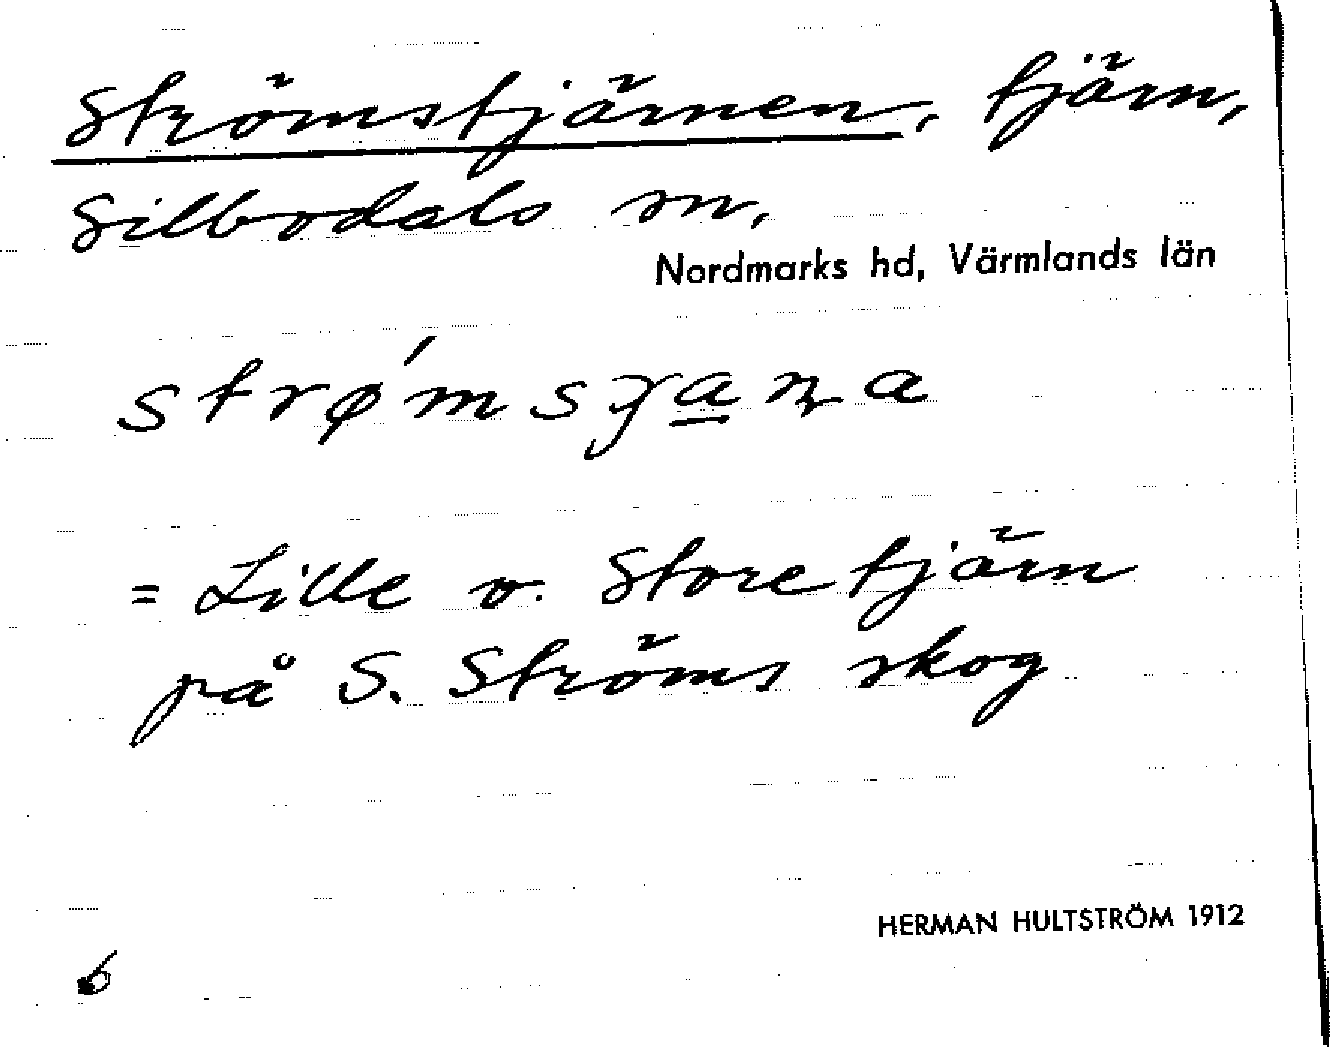 Strömstjärnen, tjärn,
Silbodals sn,
Nordmarks hd, Värmlands län
= Lille o. Store tjärn
på S. Ströms skog
HERMAN HULTSTRÖM 1912
6